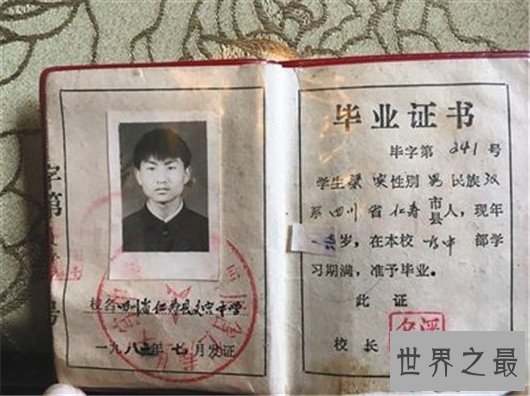 校名四川省仁寿县文宫中学
一九八 年七月发证
毕业证书
毕字第241号
学生梁 性别男民族汉
系四川省仁寿市县人，现年
岁，在本校 中部学
习期满，准予毕业。
此证
校长
世界之最